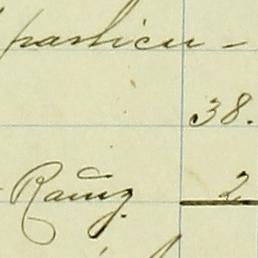 particu-
38.
Ramz. 2